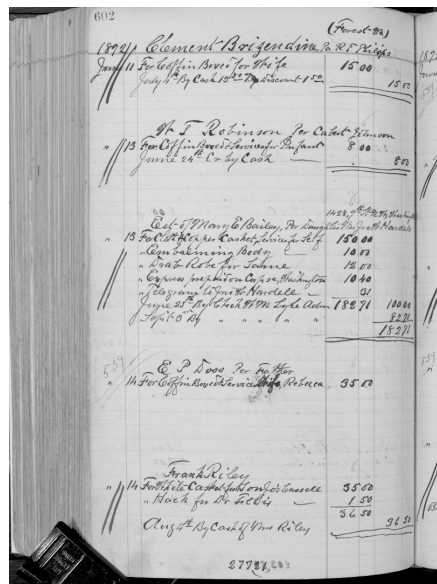 602
(Forest Va)
1892 Clement Boizendine, Per R. F. Phelps
June 11 For Coffin Boxed for Wife 15 00
July 4th By Cash 13 50 By Discount 1 50 15 00
W T Robinson Per Cabert Johnson
" 13 For Coffin Boxed & Services for Infant 8 00
June 24th Cr by Cash — 8 00
1428, 9th St N.W. Wash
Est of Mary E Bailey, Per Daughter Mrs Jno W Hardell
" 13 For Cloth Copper Casket, Services for Self 150 00
" Embalming Body — 10 00
" Drab Robe for Same 12 00
" Express prepaid on Corpse, Washington 10 40
" Telegram to Jno W Hardell — 31
June 25th By Check W M Lyle Adm 182 71 100 00
Sept 3rd By " " " " 82 71
182 71
539
E P Doss Per Father
" 14 For Coffin Boxed & Services Wife Rebecca 35 00
Frank Riley
" 14 For White Casket for Son Jos Cassell 35 00
" Hack for Dr — 1 50
36 50
Aug 4th By Cash of Mrs Riley 36 50